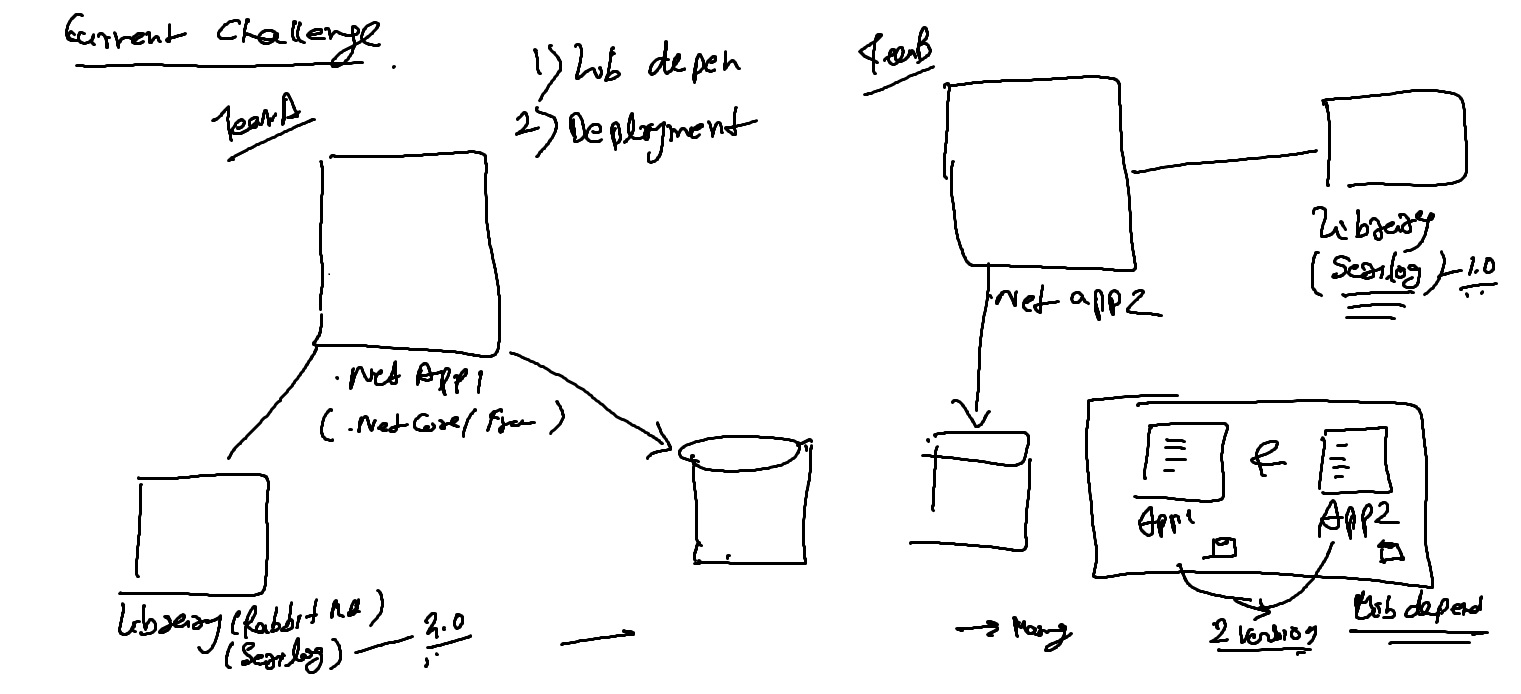 Current Challenge
1) Lib depen
2) Deployment
Team A
.Net App1
(.Net Core/ Fram)
Library (Rabbit MQ)
(Serilog) — 2.0
Team B
.Net app2
Library
(Serilog) – 1.0
App1
&
App2
2 version
Lib depend
→ Many